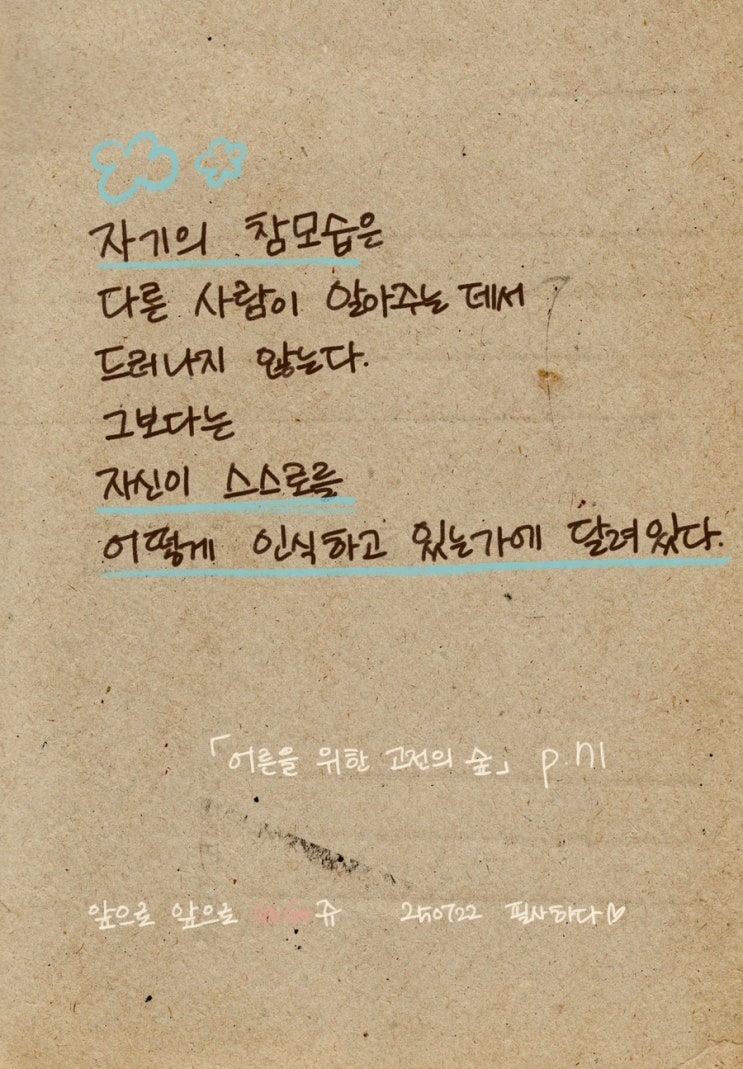 자기의 참모습은
다른 사람이 알아주는 데서
드러나지 않는다.
그보다는
자신이 스스로를
어떻게 인식하고 있는가에 달려 있다.
「어른을 위한 고전의 숲」 p.171
앞으로 앞으로 쥬 250722 필사하다